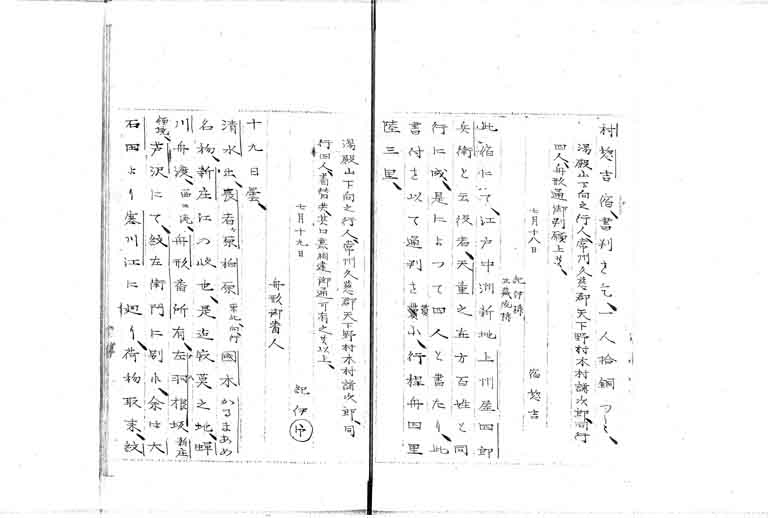 村惣吉宿書判を乞、一人拾銅つゝ、
湯殿山下向之行人、常州久慈郡天下野村木村謙次郎、同行
四人、舟形通御判願上候、
七月十八日
宿惣吉
此宿にて、江戸中洲新地上州屋四郎
兵衛と云後者、天童之在方百姓と同
行に成、是によつて四人と書たり、此
書付を以て通判を貰ふ、行程舟四里
陸三里、
湯殿山下向之行人、常州久慈郡天下野村木村謙次郎、同
行四人、書替候其口無相違御通可有之候、以上、
七月十九日
紀伊 印
舟形御番人
十九日曇、
清水出、長者原柏原 国木かるまあめ
名物、新庄に つ 也、是迄 之地、
川舟渡、西に流、舟形番所有、左羽根坂、新庄
領境、芦沢にて、紋左衛門に別れ、余は大
石田より寒川江に廻り、荷物取来、紋